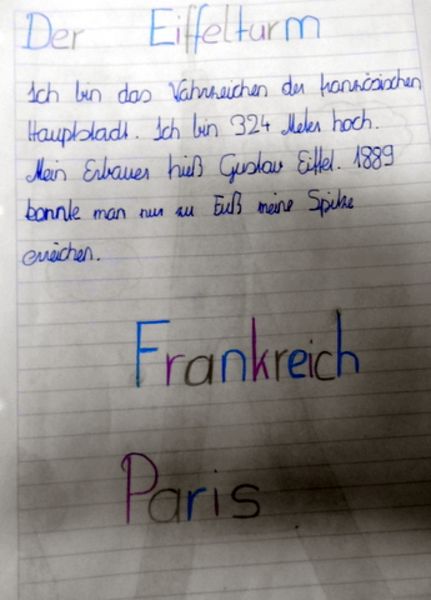 Der Eiffelturm
Ich bin das Vahrzeichen der französischen
Hauptstadt. Ich bin 324 Meter hoch.
Mein Erbauer hieß Gustav Eiffel. 1889
konnte man nur zu Fuß meine Spitze
erreichen.
Frankreich
Paris